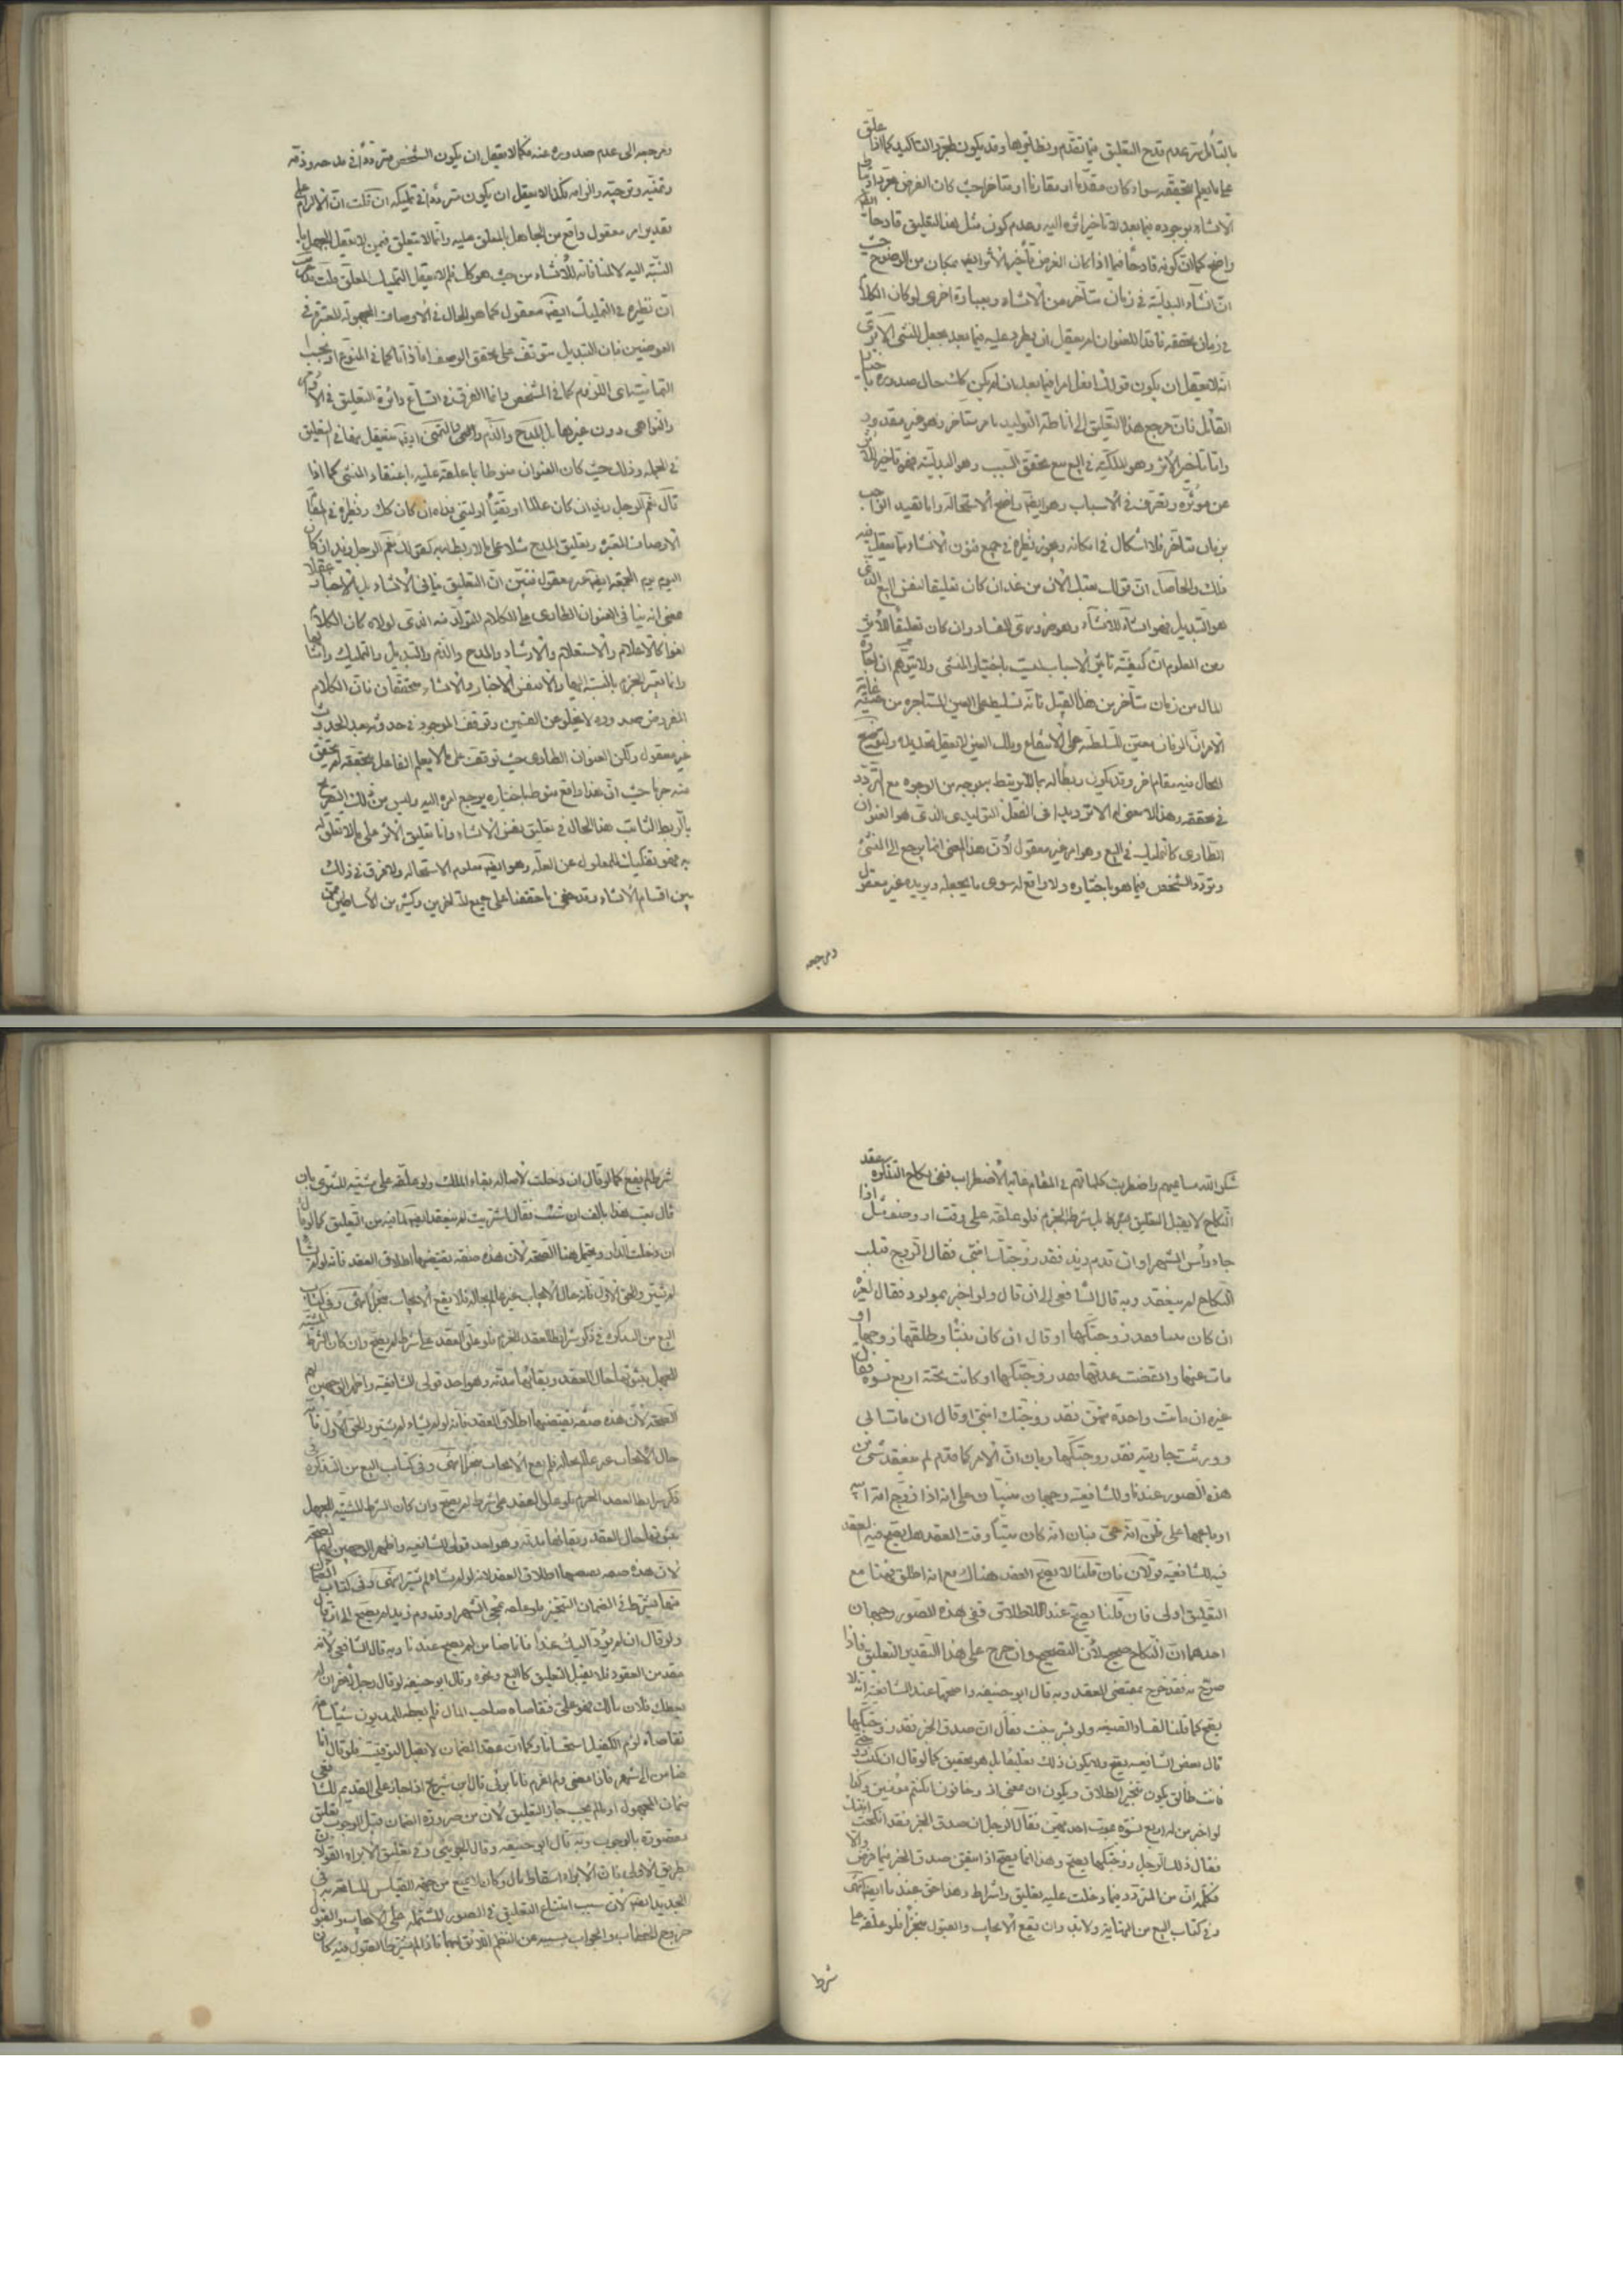 بالتأمل سر عدم قدح التعليق فيما تقدم ونظائرها وقد يكون لمجرد التاكيد كما اذا علق
على ما يعلم تحققه سواء كان مقدما او مقارنا او متاخرا حيث كان الغرض
الانشاء بوجوده فيما بعد لا تاخير اثره اليه وعدم كون مثل هذا التعليق قادحا
واضح كما ان كونه قادحا فيما اذا كان الغرض تأخير الأثر ايضا بمكان من الوضوح حيث
ان انشاء البدلية في زمان متأخر من الانشاء وبعبارة اخرى لو كان الكلام
في زمان تحققه فاقدا للعنوان لم يعقل ان يطرء عليه فيما بعد بجعل المنشى الا ترى
انه لا يعقل ان يكون قولك افعل امرا فيما بعد ان لم يكن كك حال صدوره
القائل فان مرجع هذا التعليق الى اناطة التوليد بامر متاخر وهو غير مقدور
واما تأخير الأثر وهو الملكية في البيع مع تحقق السبب وهو البدلية فهو تاخير للأثر
عن مؤثره وتصرف في الاسباب وهو ايضا واضح الاستحالة واما تقييد الواجب
بزمان متأخر فلا اشكال في امكانه ويجوز نظيره في جميع فنون الانشاء مما يعقل فيه
ذلك والحاصل ان قولك بعتك الآن من غد ان كان تعليقا لنفس البيع الذي
هو التبديل فهو انشاء للانشاء وهو ضروري الفساد وان كان تعليقا للأثر
فمن المعلوم ان كيفية تأثير الاسباب ليست باختيار المنشى ولا يتوهم ان اجارة
المال من زمان متأخر من هذا القبيل فانه تسليط على العين المستاجرة من حينه غاية
الامر ان الزمان معين للسلطنة على الانتفاع وملك العين لا يعقل تحديده ولتوضيح
الحال فيه مقام اخر وقد يكون ربطا له بما لا يرتبط به بوجه من الوجوه مع التردد
في تحققه وهذا لا معنى له الا ترديدا في الفعل التوليدي الذي هو العنوان
الطارى كالتمليك في البيع وهو امر غير معقول لأن هذا المعنى انما يرجع الى المنشئ
وتردد الشخص فيما هو باختياره ولا واقع له سوى ما يجعله ويريده غير معقول
ومرجعه
ومرجعه الى عدم صدوره عنه فكما لا يعقل ان يكون الشخص مترددا في مدحه وذمه
وتمنيه وترجيه والزامه فكذا لا يعقل ان يكون مترددا في تمليكه ان قلت ان الالزام على
تقدير امر معقول واقع من الجاهل بالمعلق عليه وانما لا يتعلق فيمن لا يعقل الجهل با
لنسبة اليه لا لمنافاته للانشاء من حيث هو كك فلم لا يعقل التمليك المعلق قلت
ان نظيره في التمليك ايضا معقول كما هو الحال في الاوصاف المجهولة المعتبرة في
العوضين فان التبديل يتوقف على تحقق الوصف اما ذاتا كما في المنوع او بحسب
التمامية اى اللزوم كما في المشخص وانما الفرق في اتساع دائرة التعليق في الاوامر
والنواهى دون غيرها بل المدح والذم والترجى والتمنى ايضا يتعقل فيها التعليق
في الجملة وذلك حيث كان العنوان منوطا بما علقه عليه باعتقاد المنشى كما اذا
قال نعم الرجل زيد ان كان عالما او تقيا او ليتنى فداه ان كان كك ونظيره في
الاوصاف المعتبرة وتعليق المدح مثلا على ما لا ربط له به كقولك نعم الرجل زيد ان كان
اليوم يوم الجمعة ايضا غير معقول فتبين ان التعليق ينافى الانشاء بل الاخبار عقلا
بمعنى انه ينافى العنوان الطارى على الكلام المتولد منه الذى لولاه كان الكلام
لغوا كالاعلام والاستعلام والارشاد والمدح والذم والتبديل والتمليك وامثالها
وانما يعتبر الجزم بالنسبة اليها والا فنفس الاخبار والانشاء متحققان فان الكلام
المفروض صدوره لا يخلو عن القسمين وتوقف الموجود في حدوثه بعد الحدوث
غير معقول ولكن العنوان الطارى حيث توقف على ما لا يعلم الفاعل بتحققه لم يتحقق
منه جزما حيث ان هذا واقع منوط باختياره يرجع امره اليه وليس من ذلك التصريح
بالربط الثابت هذا الحال في تعليق نفس الانشاء واما تعليق الاثر على ما لا تعلق له
به فهو تفكيك للمعلول عن العلة وهو ايضا معلوم الاستحالة ولا فرق في ذلك
بين اقسام الانشاء وقد خفى ما حققنا على جميع المتأخرين وكثير من الأساطين
شكر الله مساعيهم واضطربت كلماتهم في المقام غاية الاضطراب ففى نكاح التذكرة عقد
النكاح لا يقبل التعليق بشرط بل شرطه الجزم فلو علقه على وقت او وصف مثل اذا
جاء رأس الشهر او ان قدم زيد فقد زوجتك ابنتى فقال الزوج قبلت
النكاح لم ينعقد وبه قال الشافعى الى ان قال ولو اخبر بمولود فقال لغيره
ان كان بنتا فقد زوجتكها او قال ان كان بنتا وطلقها زوجها او
مات عنها وانقضت عدتها فقد زوجتكها او كانت تحته اربع نسوة فقال
غيره ان ماتت واحدة منهن فقد زوجتك ابنتى او قال ان مات ابى
وورثت جاريته فقد زوجتكها وبان ان الامر كما قدم لم ينعقد شئ من
هذه الصور عندنا وللشافعية وجهان مبنيان على انه اذا زوج امة ابيه
او باعها على ظن انه حى فبان انه كان ميتا وقت العقد هل يصح فيه العقد
فيه للشافعية قولان فان قلنا لا يصح العقد هناك مع انه اطلق فهنا مع
التعليق اولى فان قلنا يصح عند الاطلاق ففى هذه الصور وجهان
احدهما ان النكاح صحيح لأن التصحيح وان خرج على هذا التقدير والتعليق فاذا
صرح به فقد خرج بمقتضى العقد وبه قال ابو حنيفة واصحهما عند الشافعية انه لا
يصح كما قلنا لفساد الصيغة ولو بشر ببنت فقال ان صدق الخبر فقد زوجتكها
قال بعض الشافعية يصح ولا يكون ذلك تعليقا بل هو تحقيق كما لو قال ان كنت زوجتى
فانت طالق يكون تنجيز الطلاق ويكون ان بمعنى اذ وخافون ان كنتم مؤمنين وكذا
لو اخبر من له اربع نسوة بموت احديهن فقال لرجل ان صدق الخبر فقد انكحت ابنتك
فقال ذلك الرجل زوجتكها يصح وهذا انما يصح اذا تيقن صدق الخبر فيما فرض والا
فكلمة ان من المتردد فيما دخلت عليه تعليق واشراط وهذا حق عندنا ايضا انتهى
وفى كتاب البيع من النهاية ولا بد وان يقع الايجاب والقبول منجزا فلو علقه على
شرط
شرط لم يقع كما لو قال ان دخلت لأصالة بقاء الملك ولو علقه على مشية المشترى بان
قال بعتك هذا بالف ان شئت فقال اشتريت لم ينعقد ايضا لما فيه من التعليق كما لو قال
ان دخلت الدار ويحتمل هنا الصحة لأن هذه صفة يقتضيها اطلاق العقد فانه لو لم يشأ
لم يشتر والحق الاول فانه حال الايجاب غير عالم بحاله فلا يقع الايجاب منجزا انتهى وفى كتاب
البيع من التذكرة في ذكر شرائط العقد الجزم فلو علق العقد على شرط لم يصح وان كان الشرط المشية
للجهل بثبوتها حال العقد وبقائها مدته وهو احد قولى الشافعية واظهرهما الوجهين لهم
الصحة لأن هذه صفة يقتضيها اطلاق العقد فانه لو لم يشاء لم يشتر والحق الاول فانه
حال الايجاب غير عالم بحاله فلم يقع الايجاب منجزا انتهى وفى كتاب البيع من التذكرة في
ذكر شرائط العقد الجزم فلو علق العقد على شرط لم يصح وان كان الشرط المشية للجهل
بثبوتها حال العقد وبقائها مدته وهو احد قولى الشافعية واظهر الوجهين لهم الصحة
لأن هذه صفة يقتضيها اطلاق العقد لانه لو لم يشاء لم يشتر انتهى وفى كتاب الضمان
منها يشترط في الضمان التنجيز فلو علقه بمجى الشهر او قدوم زيد لم يصح الى ان قال
ولو قال ان لم يؤد اليك غدا فانا ضامن لم يصح عندنا وبه قال الشافعى لأنه
عقد من العقود فلا يقبل التعليق كالبيع ونحوه وقال ابو حنيفة لو قال رجل لآخر ان لم
يعطك فلان مالك فهو على فتقاضاه صاحب المال فلم يعطه المديون شيئا ساعة
تقاضاه لزم الكفيل استحسانا وكما ان عقد الضمان لا يقبل التوقيت فلو قال انا
ضامن الى شهر فاذا مضى ولم اغرم فانا برئ قال ابن سريج اذا جاز على القديم للشافعى
ضمان المجهول او ما لم يجب جاز التعليق لأن من ضرورة الضمان قبل الوجوب تعليق
مقصوده بالوجوب وبه قال ابو حنيفة وقال الجوينى وفى تعليق الابراء القولان
بطريق الاولى فان الابراء اسقاط قال وكان لا يمتنع من جهة القياس المسامحة به فى
الجديد ايضا لأن سبب امتناع التعليق في الصور المشتملة على الايجاب والقبول
خروج الخطاب والجواب بسببه عن النظم اللائق بهما فاذا لم يشترط القبول فيه كان